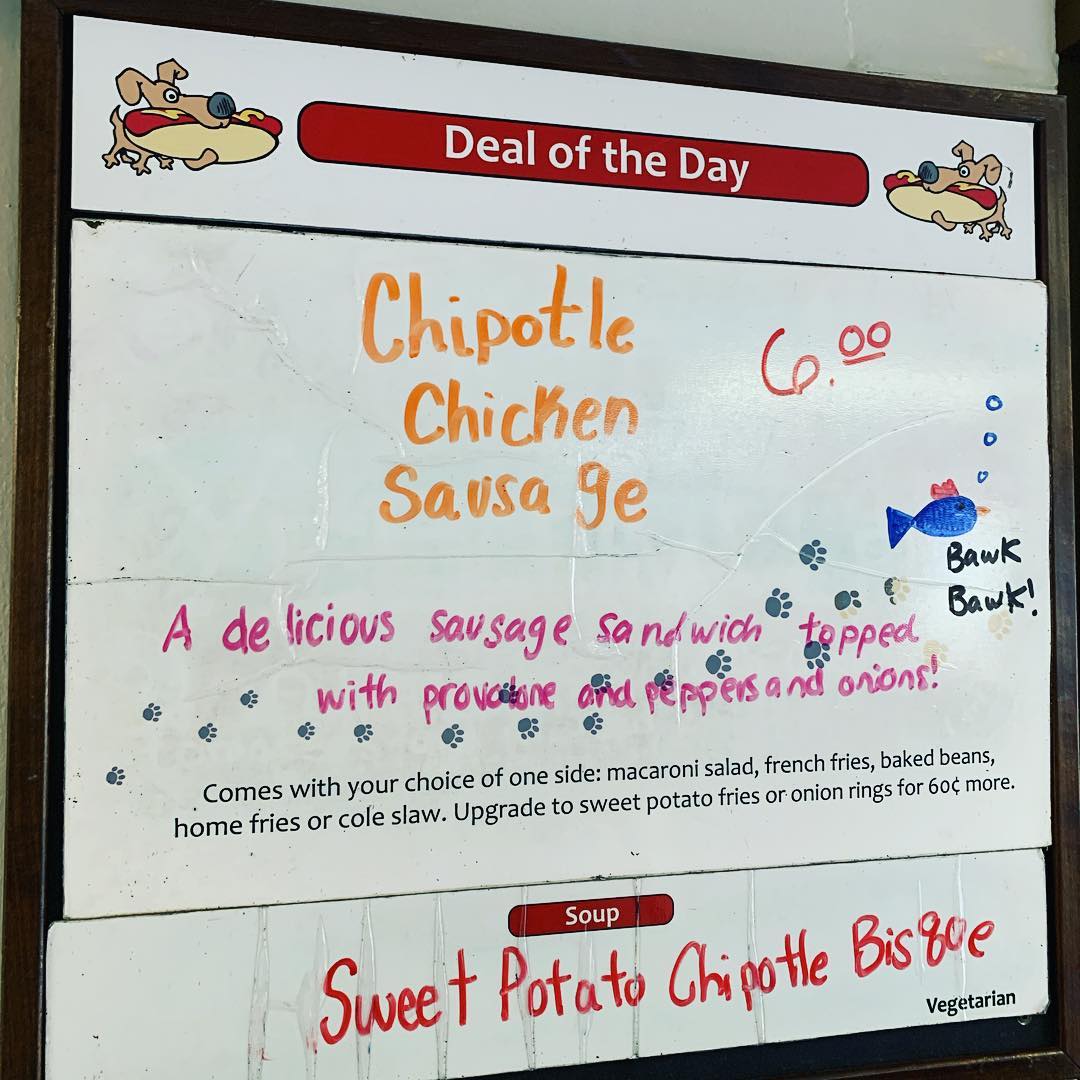 Deal of the Day
Chipotle
6.00
Chicken
Sausage
Bawk
Bawk!
A delicious sausage sandwich topped
with provolone and peppers and onions!
Comes with your choice of one side: macaroni salad, french fries, baked beans,
home fries or cole slaw. Upgrade to sweet potato fries or onion rings for 60¢ more.
Soup
Sweet Potato Chipotle Bisque
Vegetarian